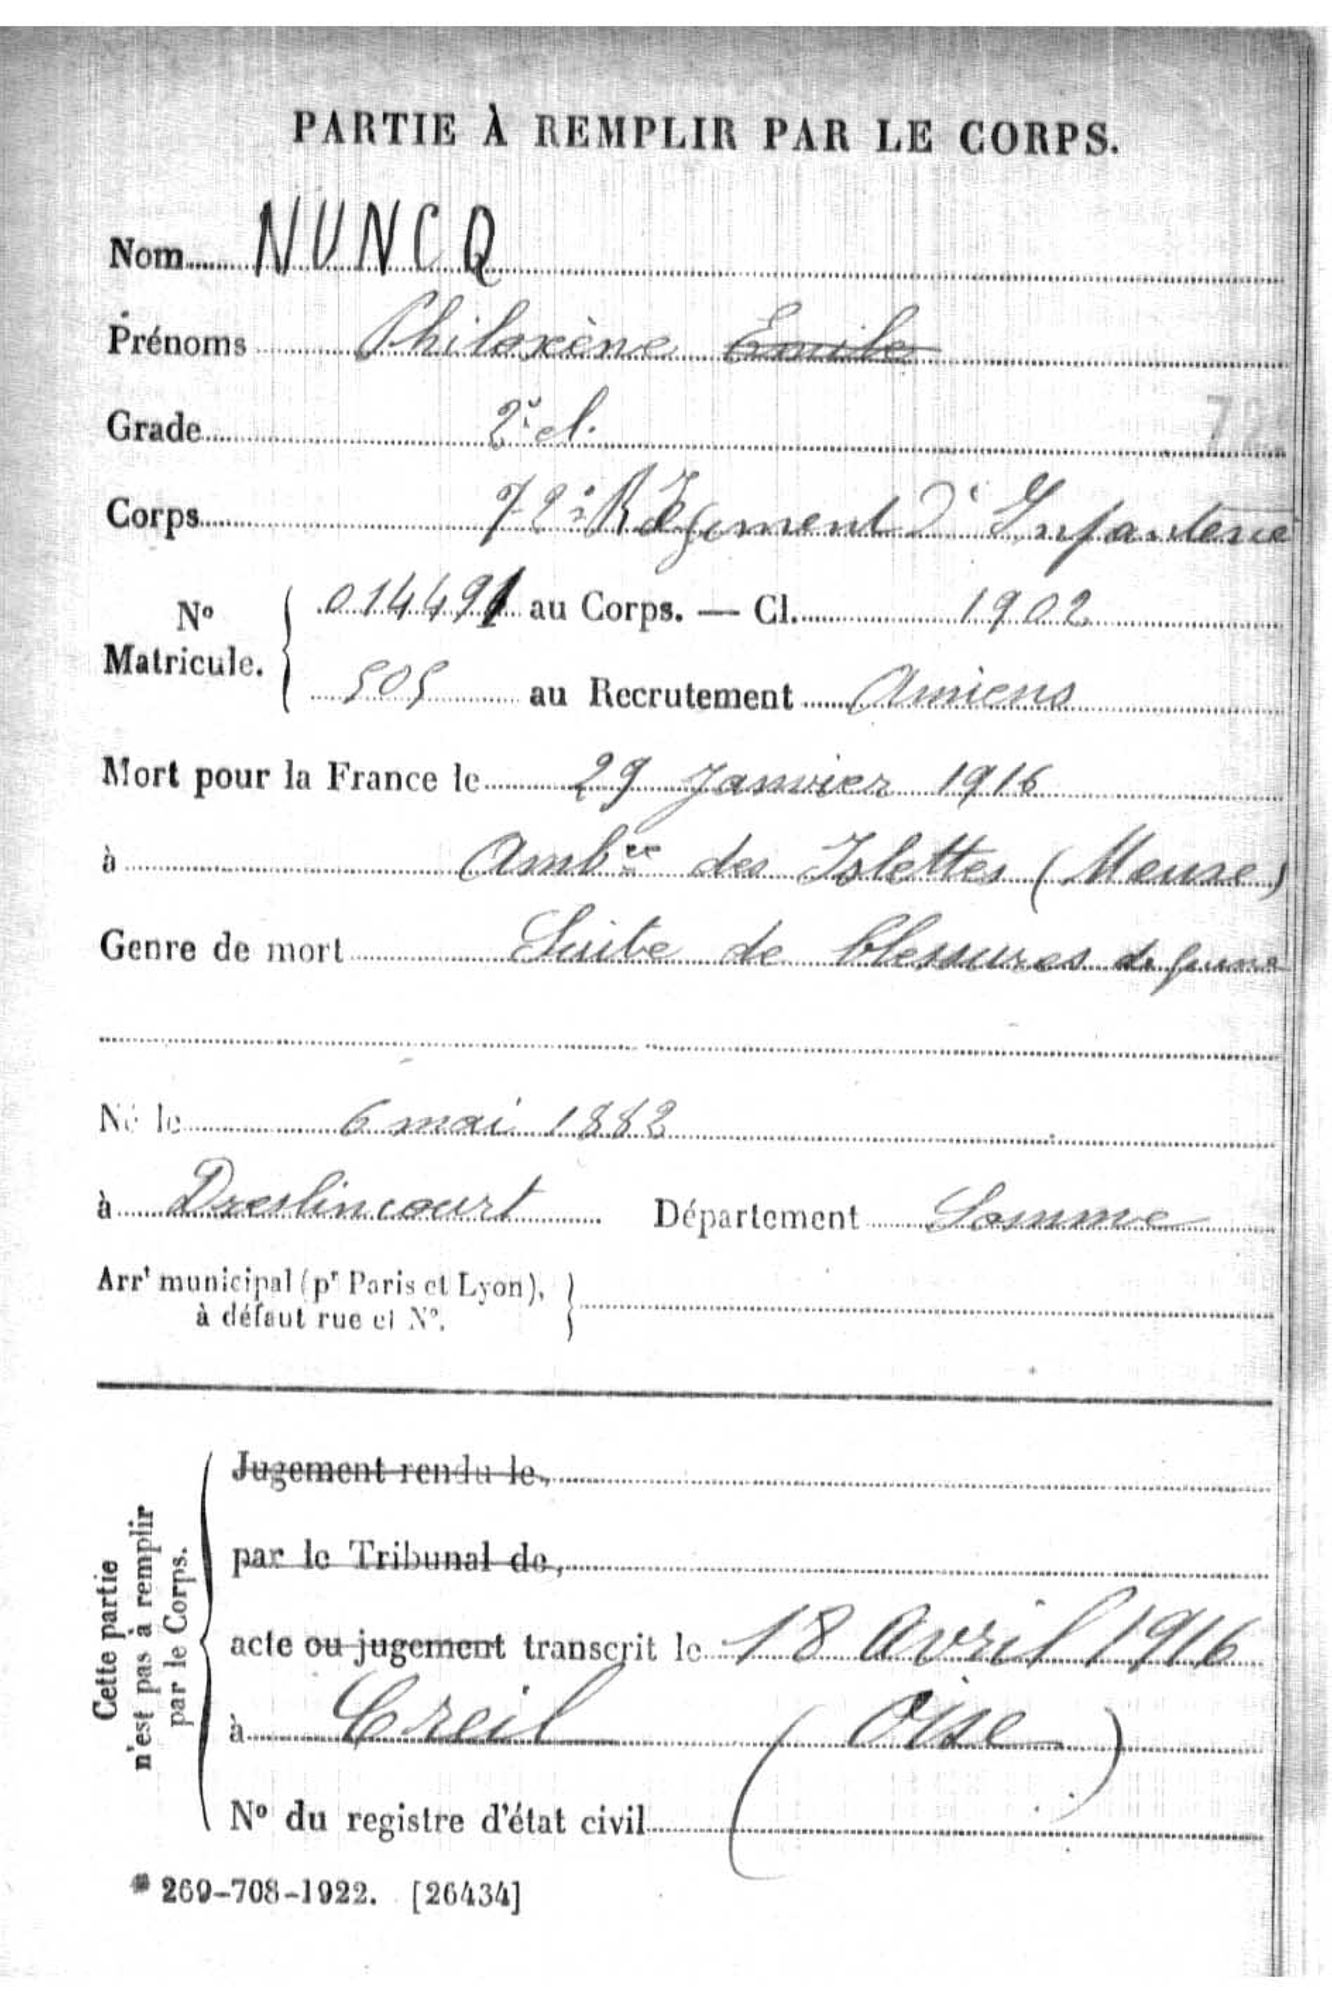 PARTIE À REMPLIR PAR LE CORPS.
Nom NUNCQ
Prénoms Philoxène Emile
Grade 2e cl.
72
Corps 72e Régiment d'Infanterie
No Matricule. { 014491 au Corps. — Cl. 1902
505 au Recrutement Amiens
Mort pour la France le 29 Janvier 1916
à Ambce des Islettes (Meuse)
Genre de mort Suite de blessures de guerre
Né le 6 mai 1882
à Dreslincourt Département Somme
Arrt municipal (pr Paris et Lyon), }
à défaut rue et No.
Cette partie
n'est pas à remplir
par le Corps.
Jugement rendu le,
par le Tribunal de,
acte ou jugement transcrit le 18 avril 1916
à Creil (Oise)
No du registre d'état civil
269-708-1922. [26434]